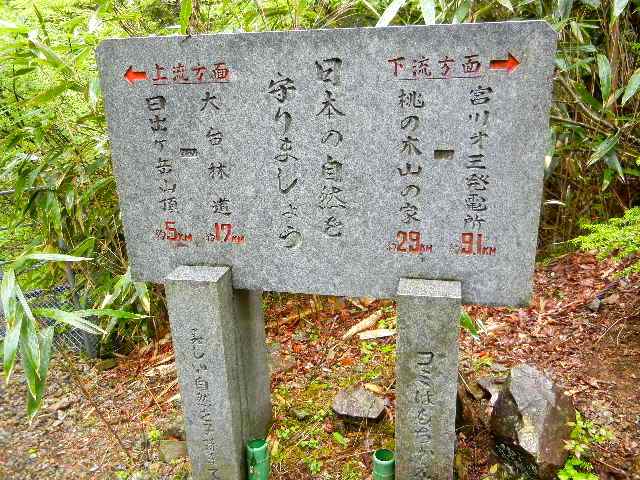 下流方面 →
宮川才三発電所 約9.1KM
桃の木山の家 約2.9KM
日本の自然を
守りましょう
← 上流方面
大台林道 約1.7KM
日出ヶ岳山頂 約5KM
ゴミはもち
美しい自然を